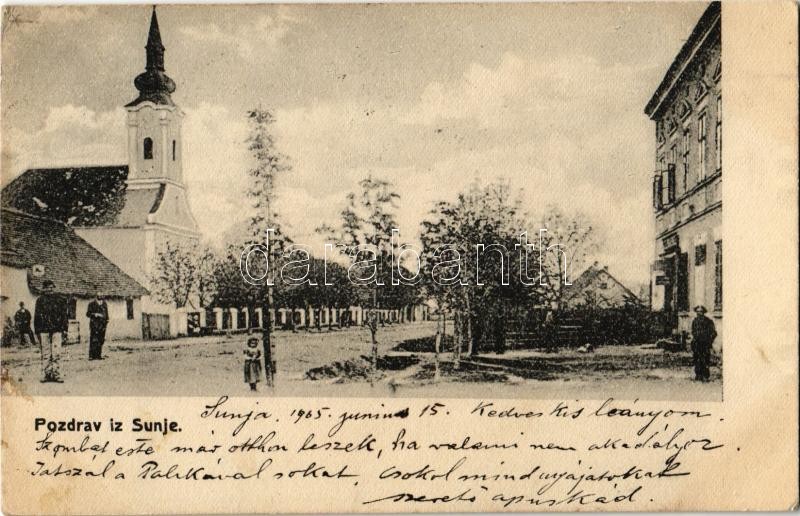 darabanth.com
Pozdrav iz Sunje.
Sunja, 1905. junius 15. Kedves kis leányom.
Szombat este már otthon leszek, ha valami nem akadályoz.
Játszál a Palikával sokat. Csókol mindnyájatokat
szerető apuskád.